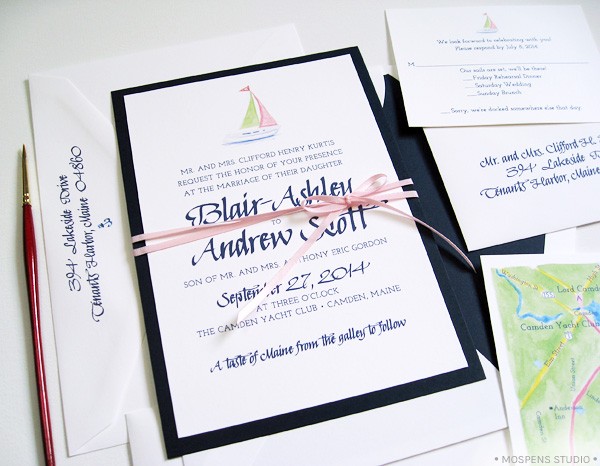 MR. AND MRS. CLIFFORD HENRY KURTIS
REQUEST THE HONOR OF YOUR PRESENCE
AT THE MARRIAGE OF THEIR DAUGHTER
Blair Ashley
TO
Andrew Scott
SON OF MR. AND MRS. ANTHONY ERIC GORDON
September 27, 2014
AT THREE O'CLOCK
THE CAMDEN YACHT CLUB • CAMDEN, MAINE
A taste of Maine from the galley to follow
394 Lakeside Drive
Tenants Harbor, Maine 04860
We look forward to celebrating with you!
Please respond by July 8, 2014
M
Our sails are set, we'll be there!
__Friday Rehearsal Dinner
__Saturday Wedding
__Sunday Brunch
__Sorry, we're docked somewhere else that day.
Mr. and Mrs. Clifford H.
394 Lakeside
Tenants Harbor, Maine
Washington St
Lord Camden
A
Camden Yacht Club
Elm Street
• MOSPENS STUDIO •